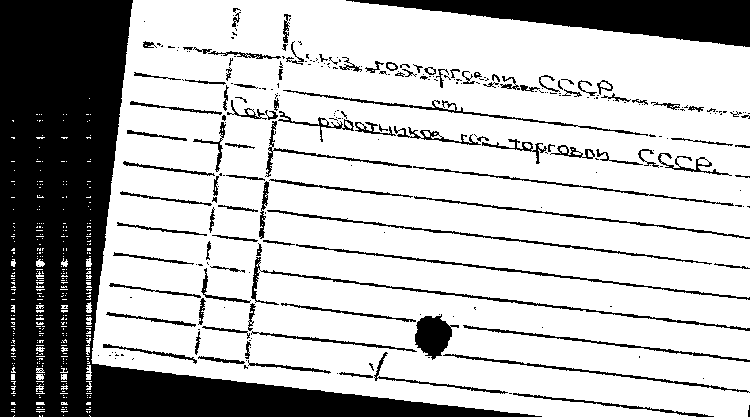 Союз госторговли СССР
см.
Союз работников гос. торговли СССР.